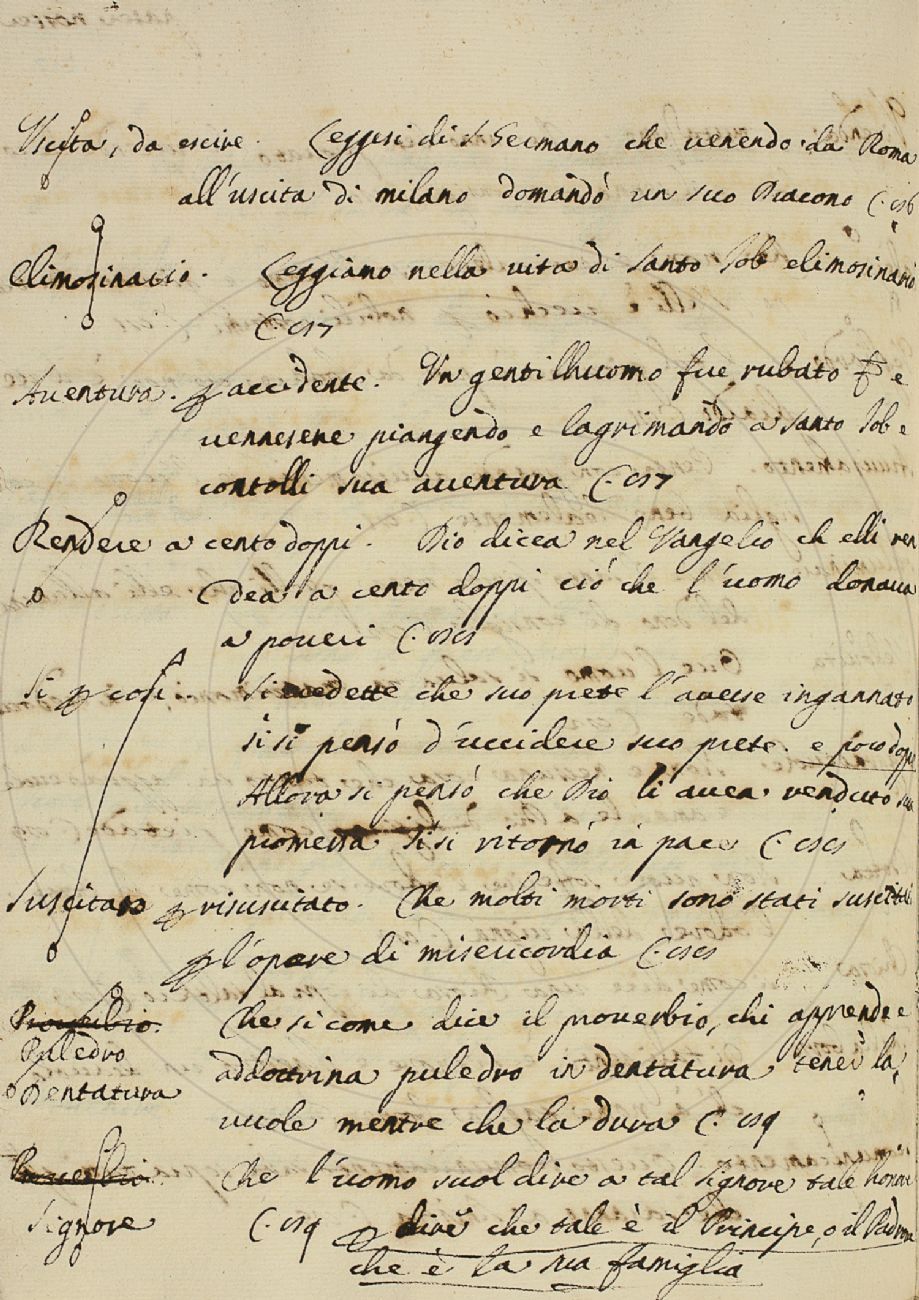 Uscita, da escire. Leggesi di S. Germano che venendo da Roma
all'uscita di milano domandò un suo Diacono C.
Elimosinario. Leggiamo nella vita di santo Job elimosinario
C.
Aventura. p accidente. Un gentilhuomo fue rubato e
vennesene piangendo e lagrimando a santo Job e
contolli sua aventura C.
Rendere a cento doppi. Dio dicea nel Vangelio ch elli ren
dea a cento doppi ciò che l'uomo donava
a poveri C.
Si p cosi. Si vedette che suo prete l'avesse ingannato
si si pensò d'uccidere suo prete. e poco dopo
Allora si pensò che Dio li avea venduto sua
promessa si si ritornò in pace C.
Suscitato p risuscitato. Che molti morti sono stati suscitati
p l'opere di misericordia C.
Proverbio. Che si come dice il proverbio, chi apprende e
Puledro
addoctrina puledro in dentatura tener la
Dentatura
vuole mentre che la dura C.
Proverbio. Che l'uomo suol dire a tal signore tale
Signore C. p dire che tale è il Principe, o il Padrone
che è la sua famiglia